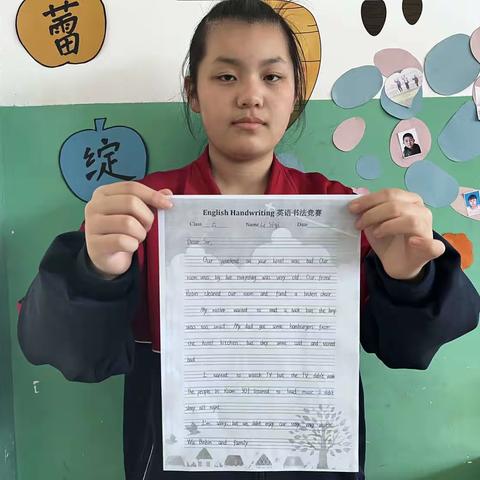 蕾
绽
English Handwriting 英语书法竞赛
Class Name Date
Dear Sir,
Our weekend at your hotel was bad. Our
room was big, but everything was very old. Our friend
Robin cleaned our room and found a broken chair.
My mother wanted to read a book, but the lamp
was too small. My dad got some hamburgers from
the hotel kitchen, but they were cold and tasted
bad.
I wanted to watch TV but the TV didn't work
The people in Room 301 listened to loud music. I didn't
sleep all night.
I'm sorry, but we didn't enjoy our stay very much.
Wu Binbin and family